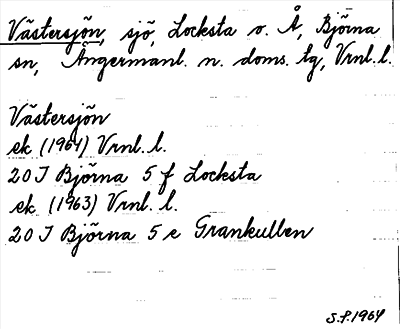 Västersjön, sjö, Locksta o. Å, Björna
sn, Ångermanl. n. doms. tg, Vrnl. l.
Västersjön
ek (1964) Vrnl. l.
20 J Björna 5 f Locksta
ek (1963) Vrnl. l.
20 J Björna 5 e Grankullen
S.P. 1964